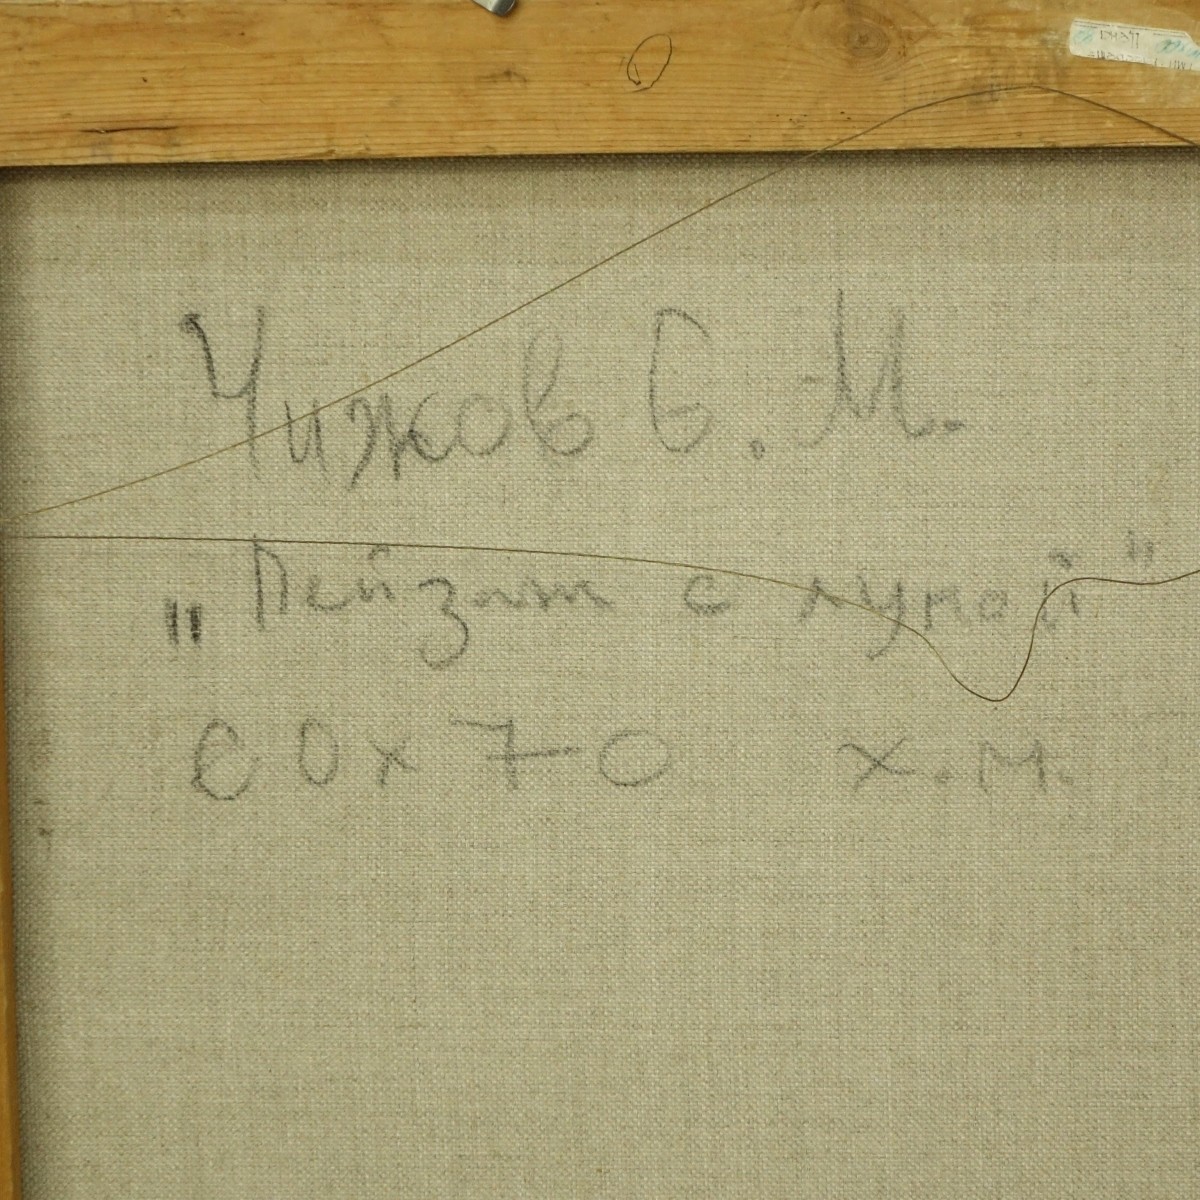 Чижов С. М.
„Пейзаж с луной”
60 х 70 х.м.